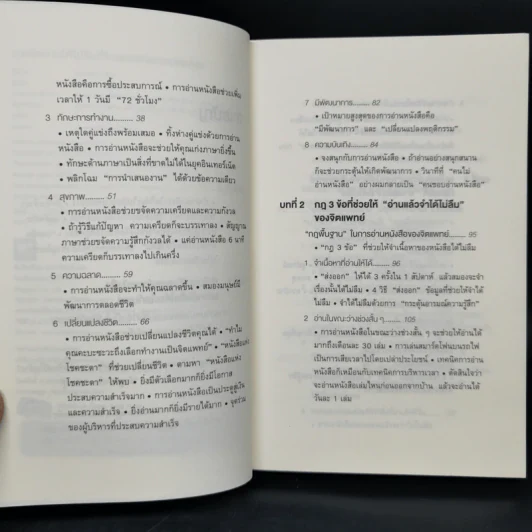 หนังสือคือการซื้อประสบการณ์ • การอ่านหนังสือช่วยเพิ่ม
เวลาให้ 1 วันมี "72 ชั่วโมง"
3 ทักษะการทำงาน.......... 38
• เหตุใดคู่แข่งถึงพร้อมเสมอ • ทิ้งห่างคู่แข่งด้วยการอ่าน
หนังสือ • การอ่านหนังสือจะช่วยให้คุณเก่งภาษายิ่งขึ้น
• ทักษะด้านภาษาเป็นสิ่งที่ขาดไม่ได้ในยุคอินเทอร์เน็ต
• พลิกโฉม "การนำเสนองาน" ได้ด้วยข้อความเดียว
4 สุขภาพ.......... 51
• การอ่านหนังสือช่วยขจัดความเครียดและความกังวล
• ถ้ารู้วิธีแก้ปัญหา ความเครียดก็จะบรรเทาลง • สัญญาณ
ภาษาช่วยขจัดความรู้สึกกังวลได้ • แค่อ่านหนังสือ 6 นาที
ความเครียดก็บรรเทาลงไปเกินครึ่ง
5 ความฉลาด.......... 59
• การอ่านหนังสือจะทำให้คุณฉลาดขึ้น • สมองมนุษย์มี
พัฒนาการตลอดชีวิต
6 เปลี่ยนแปลงชีวิต.......... 66
• การอ่านหนังสือช่วยเปลี่ยนแปลงชีวิตคุณได้ • "ทำไม
คุณคะบะซะวะถึงเลือกทำงานเป็นจิตแพทย์" • "หนังสือแห่ง
โชคชะตา" ที่ช่วยเปลี่ยนชีวิต • ตามหา "หนังสือแห่ง
โชคชะตา" ให้พบ • ยิ่งมีตัวเลือกมากก็ยิ่งมีโอกาส
ประสบความสำเร็จมาก • การอ่านหนังสือเป็นประตูสู่เงิน
และความสำเร็จ • ยิ่งอ่านมากก็ยิ่งมีรายได้มาก • จุดร่วม
ของผู้บริหารที่ประสบความสำเร็จ
7 มีพัฒนาการ.......... 82
• เป้าหมายสูงสุดของการอ่านหนังสือคือ
"มีพัฒนาการ" และ "เปลี่ยนแปลงพฤติกรรม"
8 ความบันเทิง.......... 84
• จงสนุกกับการอ่านหนังสือ • ถ้าอ่านอย่างสนุกสนาน
ก็จะช่วยกระตุ้นให้เกิดพัฒนาการ • วินาทีที่ "คนไม่
อ่านหนังสือ" อย่างผมกลายเป็น "คนชอบอ่านหนังสือ"
บทที่ 2 กฎ 3 ข้อที่ช่วยให้ "อ่านแล้วจำได้ไม่ลืม"
ของจิตแพทย์
"กฎพื้นฐาน" ในการอ่านหนังสือของจิตแพทย์.......... 95
• "กฎ 3 ข้อ" ที่ช่วยให้จำเนื้อหาของหนังสือได้ไม่ลืม
1 จำเนื้อหาที่อ่านให้ได้.......... 96
• "ส่งออก" ให้ได้ 3 ครั้งใน 1 สัปดาห์ แล้วสมองจะจำ
เรื่องนั้นได้ไม่ลืม • 4 วิธี "ส่งออก" ข้อมูลที่ช่วยให้จำได้
ไม่ลืม • จำได้ไม่ลืมด้วยการ "กระตุ้นอารมณ์ความรู้สึก"
2 อ่านในขณะว่างช่วงสั้น ๆ.......... 108
• การอ่านหนังสือในขณะว่างช่วงสั้น ๆ จะช่วยให้อ่านได้
มากถึงเดือนละ 30 เล่ม • การเล่นสมาร์ตโฟนบนรถไฟ
เป็นการเสียเวลาไปโดยเปล่าประโยชน์ • เทคนิคการอ่าน
หนังสือก็เหมือนกับเทคนิคการบริหารเวลา • ตัดสินใจว่า
จะอ่านหนังสือเล่มไหนก่อนออกจากบ้าน แล้วจะอ่านได้
วันละ 1 เล่ม